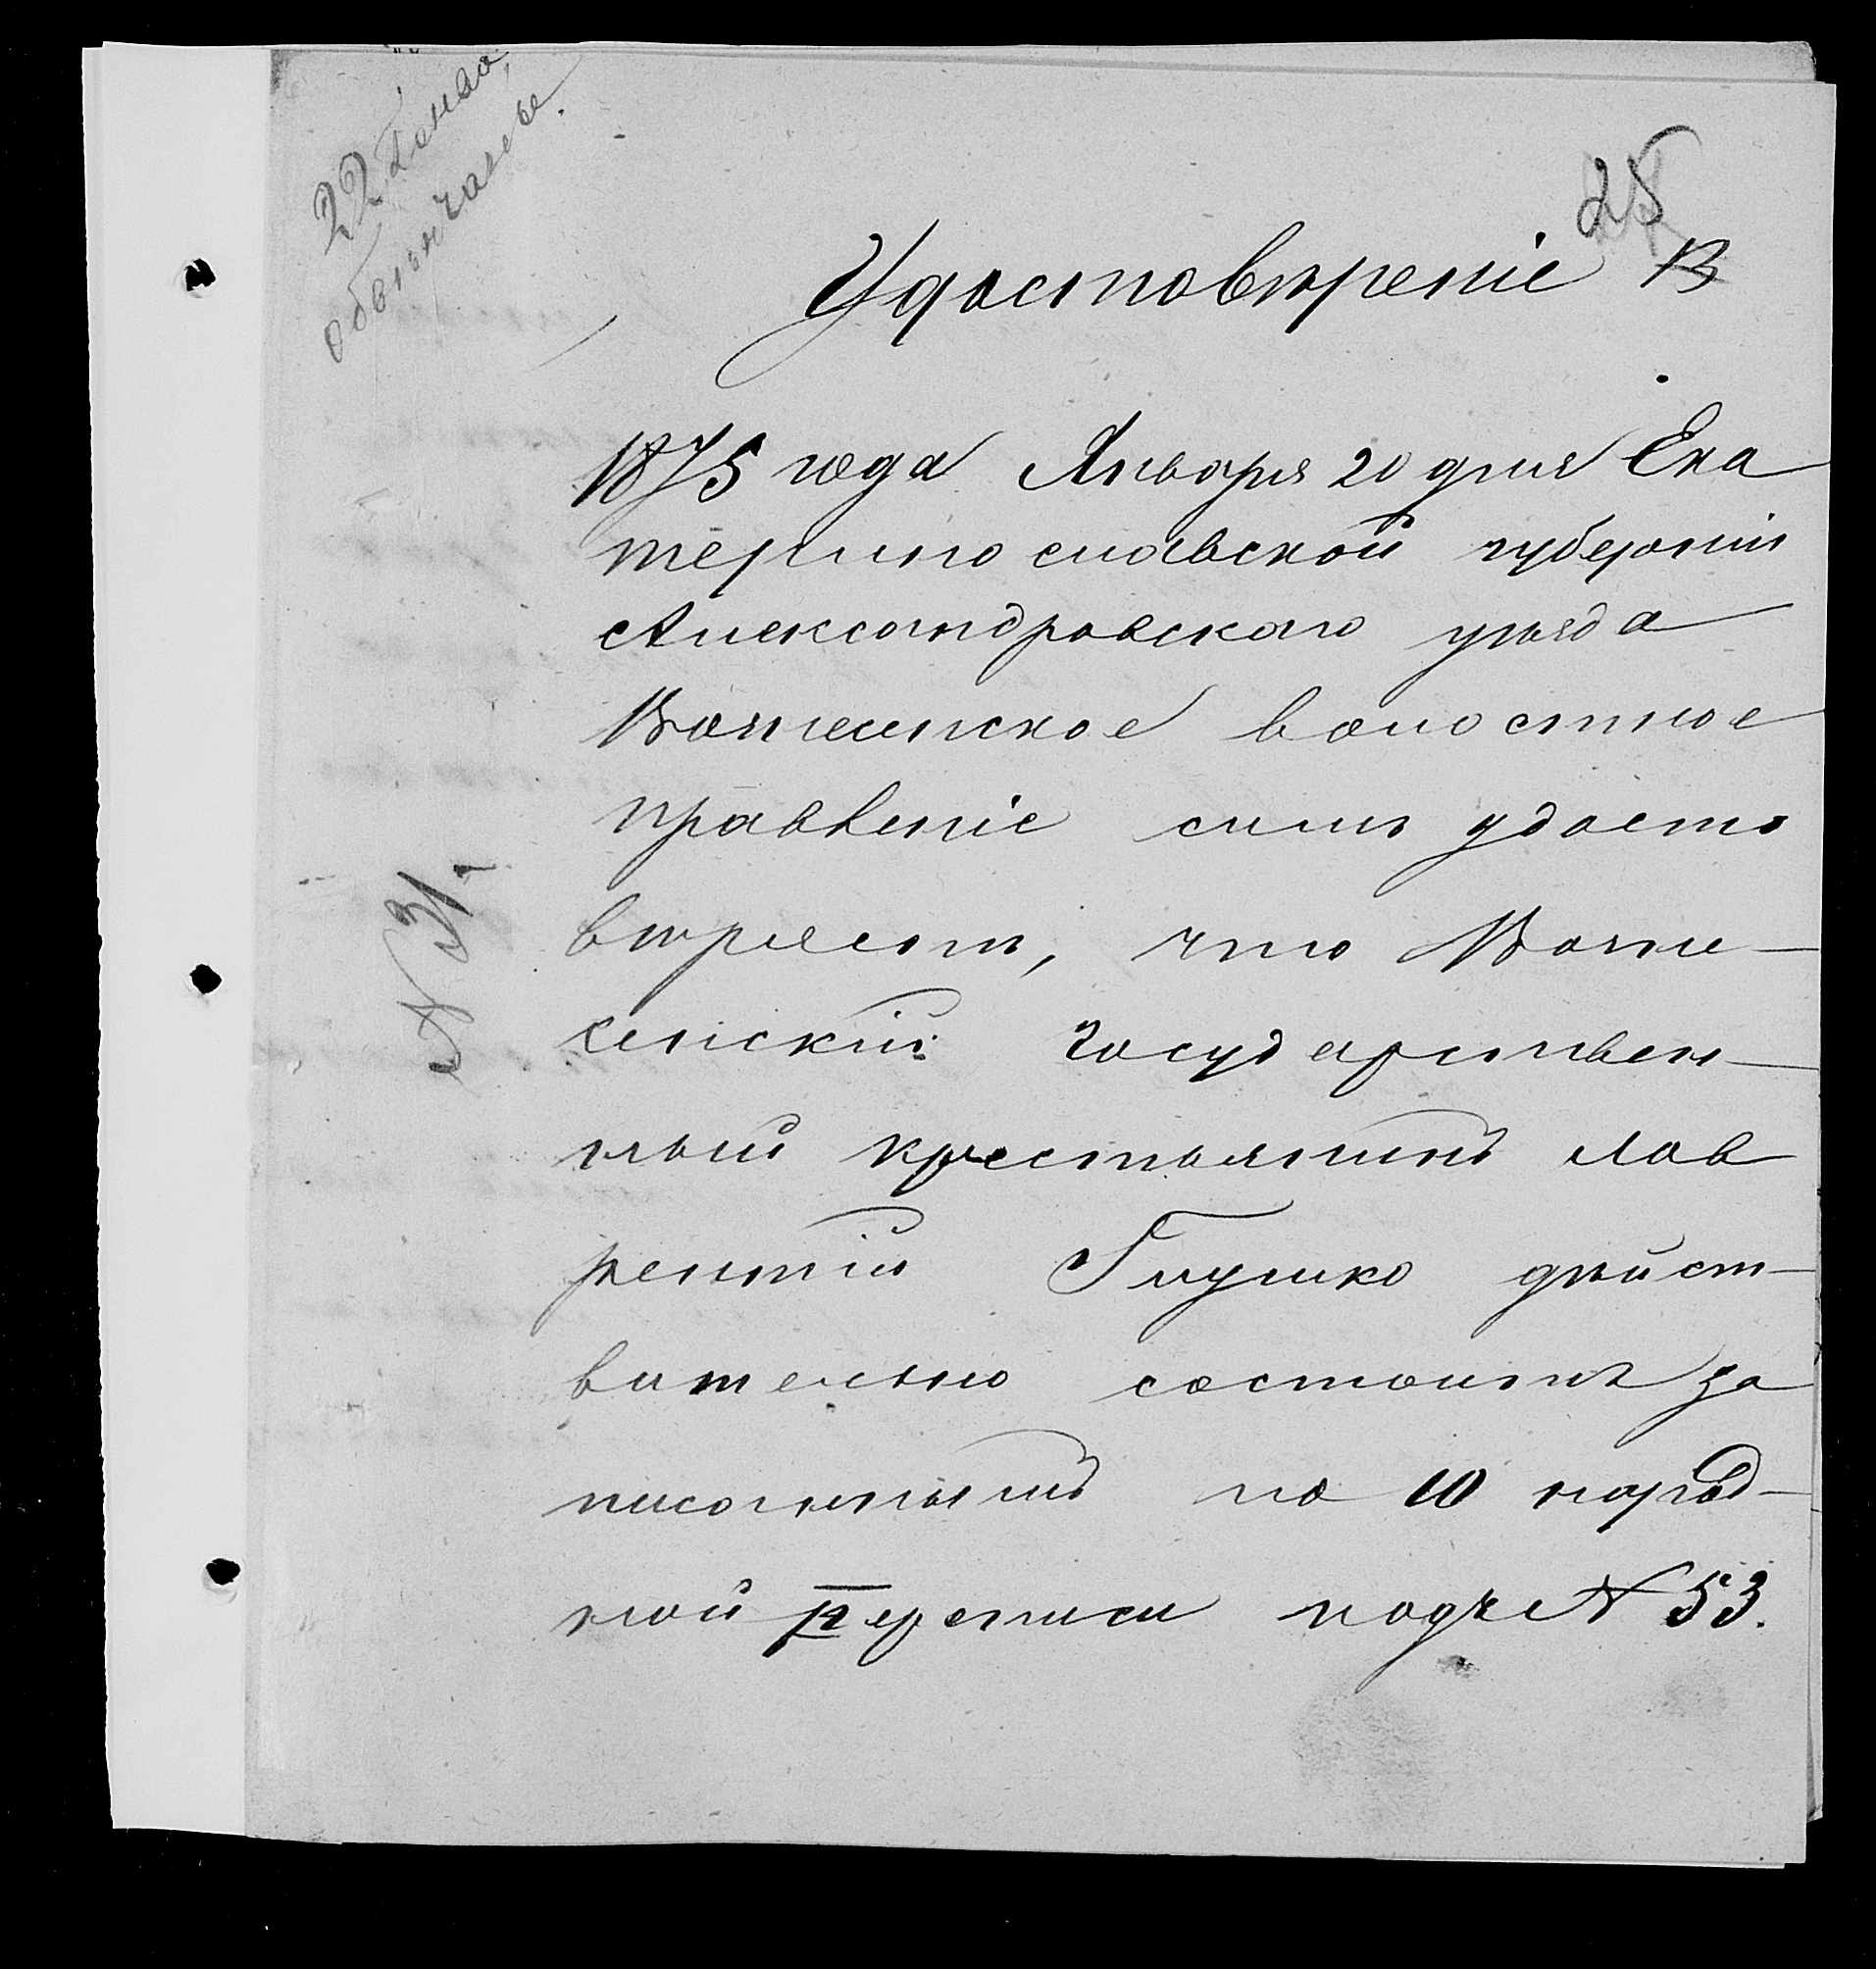 22 Генва,
обвенчаны.
25
13
Удостовѣреніе
1875 года Января 20 дня Ека
теринославской губерніи
Александровскаго уѣзда
Вознесенское волостное
правленіе симъ удосто
вѣряетъ, что Возне-
сенскій государствен-
ный крестьянинъ Лав
рентій Глушко дѣйст-
вительно состоитъ за
писаннымъ по 10 народ-
ной переписи подъ № 53.
№ 31.